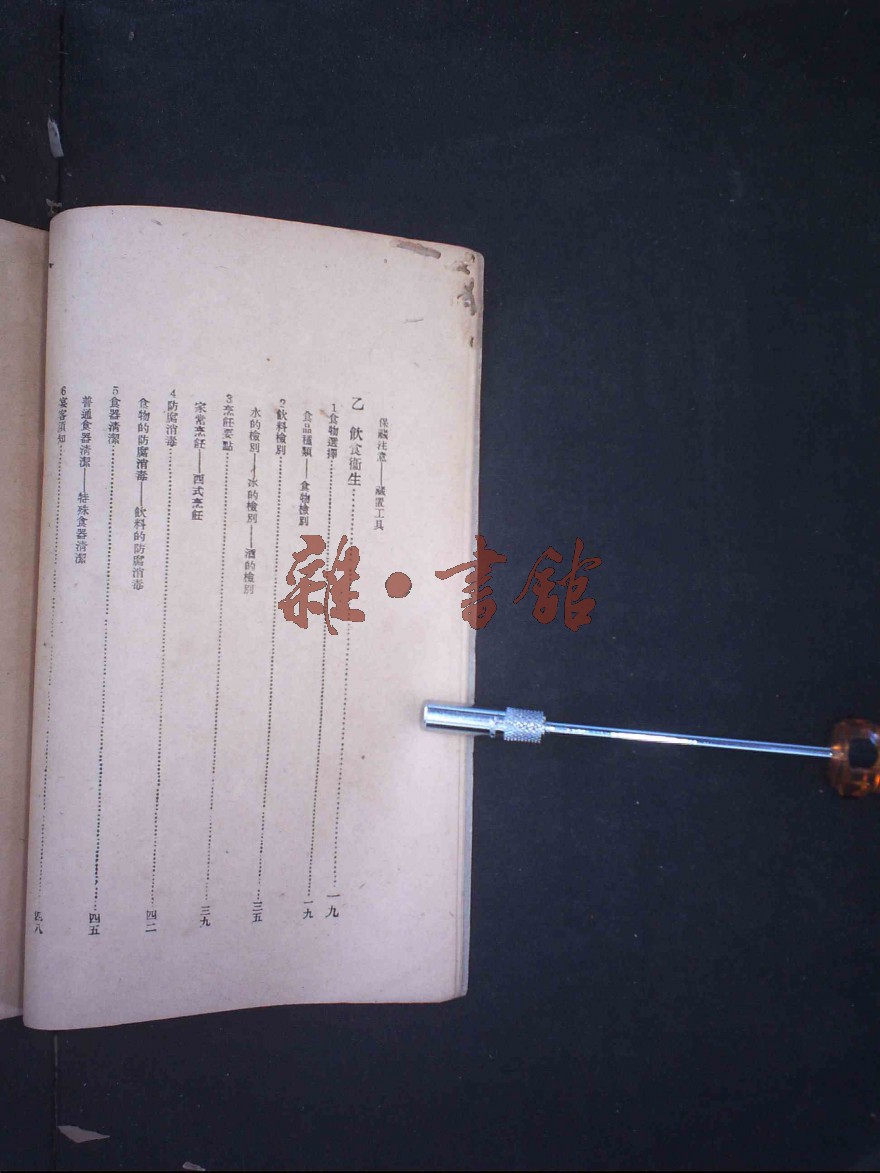 保藏注意——藏置工具
乙 飲食衞生……一九
1食物選擇……一九
食品種類——食物檢別
2飲料檢別……三五
水的檢別——冰的檢別——酒的檢別
3烹飪要點……三九
家常烹飪——西式烹飪
4防腐消毒……四二
食物的防腐消毒——飲料的防腐消毒
5食器清潔……四五
普通食器清潔——特殊食器清潔
6宴客須知……四八
雜·書館